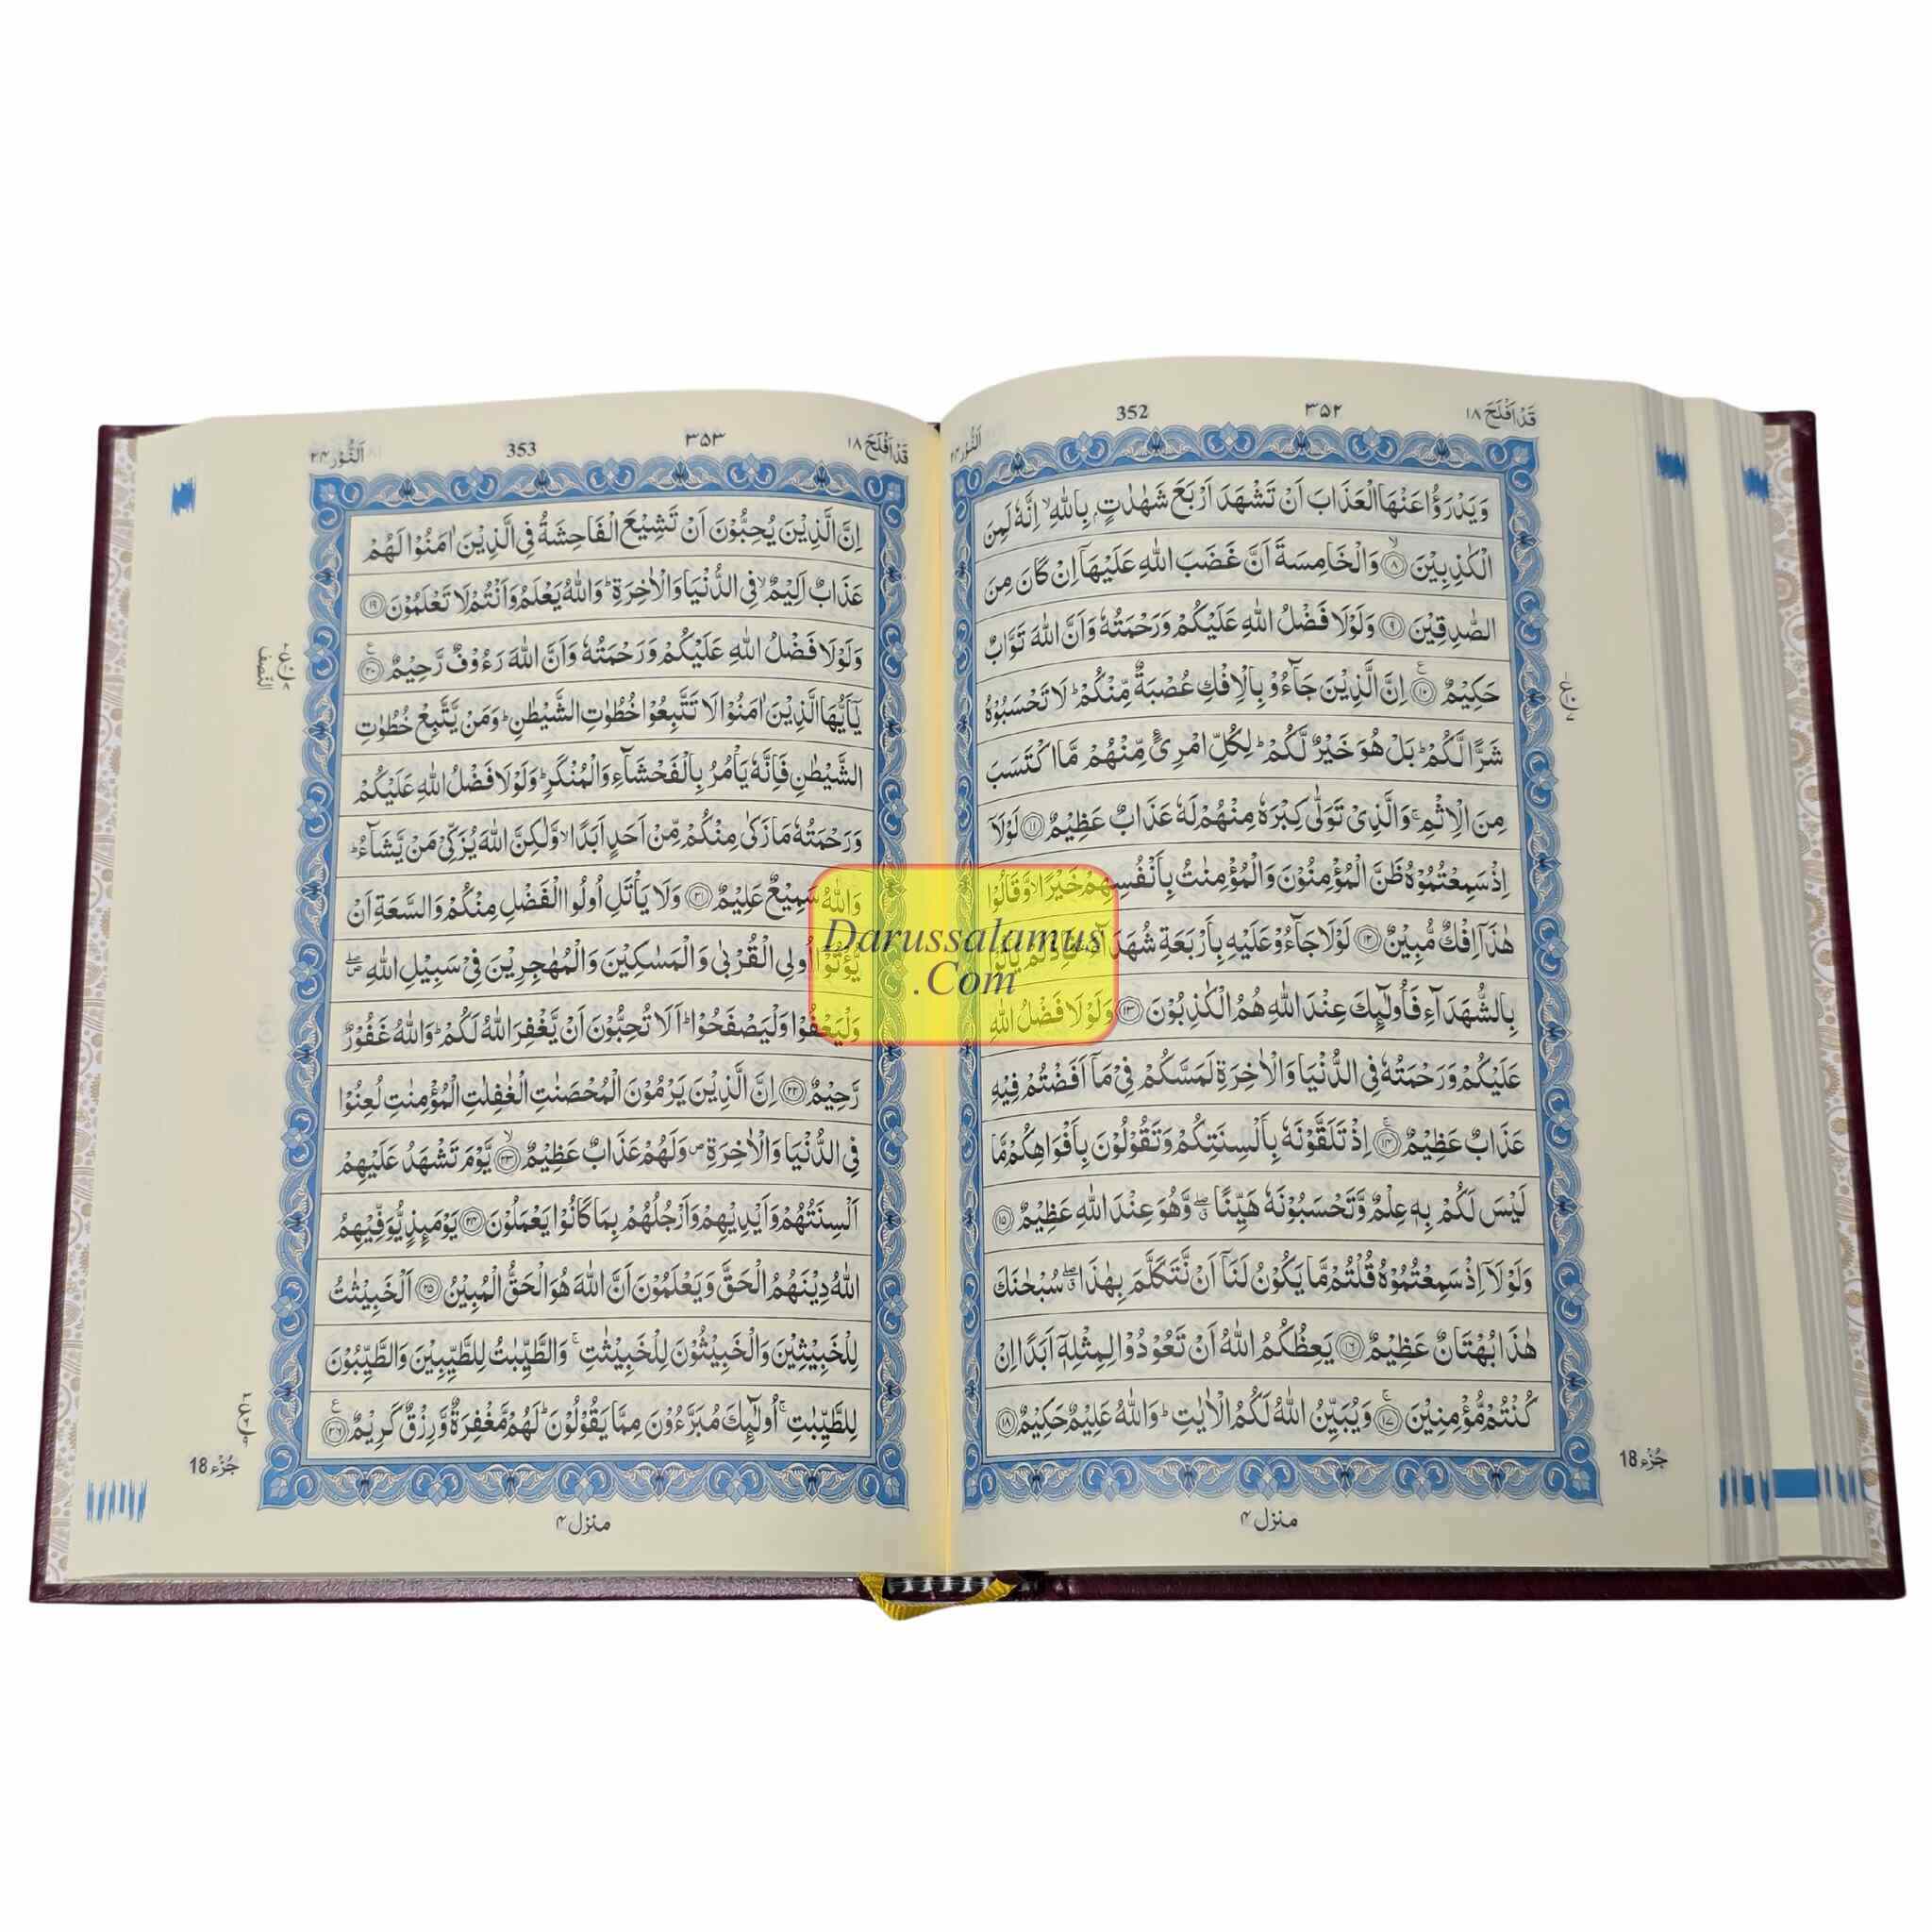 قَدْ اَفْلَحَ ١٨
٣٥٢
352
اَلنُّوْر ٢٤
وَيَدْرَؤُا عَنْهَا الْعَذَابَ اَنْ تَشْهَدَ اَرْبَعَ شَهٰدٰتٍۭ بِاللّٰهِ ۙ اِنَّهٗ لَمِنَ
الْكٰذِبِيْنَ ۙ‏﴿٨﴾ وَالْخَامِسَةَ اَنَّ غَضَبَ اللّٰهِ عَلَيْهَاۤ اِنْ كَانَ مِنَ
الصّٰدِقِيْنَ ﴿٩﴾ وَلَوْلَا فَضْلُ اللّٰهِ عَلَيْكُمْ وَرَحْمَتُهٗ وَاَنَّ اللّٰهَ تَوَّابٌ
حَكِيْمٌ ﴿١٠﴾ اِنَّ الَّذِيْنَ جَآءُوْ بِالْاِفْكِ عُصْبَةٌ مِّنْكُمْ ؕ لَا تَحْسَبُوْهُ
شَرًّا لَّكُمْ ؕ بَلْ هُوَ خَيْرٌ لَّكُمْ ؕ لِكُلِّ امْرِئٍ مِّنْهُمْ مَّا اكْتَسَبَ
مِنَ الْاِثْمِ ۚ وَالَّذِيْ تَوَلّٰى كِبْرَهٗ مِنْهُمْ لَهٗ عَذَابٌ عَظِيْمٌ ﴿١١﴾ لَوْلَاۤ
اِذْ سَمِعْتُمُوْهُ ظَنَّ الْمُؤْمِنُوْنَ وَالْمُؤْمِنٰتُ بِاَنْفُسِهِمْ خَيْرًا ۙ وَّقَالُوْا
هٰذَاۤ اِفْكٌ مُّبِيْنٌ ﴿١٢﴾ لَوْلَا جَآءُوْ عَلَيْهِ بِاَرْبَعَةِ شُهَدَآءَ ۚ فَاِذْ لَمْ يَاْتُوْا
بِالشُّهَدَآءِ فَاُولٰٓئِكَ عِنْدَ اللّٰهِ هُمُ الْكٰذِبُوْنَ ﴿١٣﴾ وَلَوْلَا فَضْلُ اللّٰهِ
عَلَيْكُمْ وَرَحْمَتُهٗ فِي الدُّنْيَا وَالْاٰخِرَةِ لَمَسَّكُمْ فِيْ مَاۤ اَفَضْتُمْ فِيْهِ
عَذَابٌ عَظِيْمٌ ۚ‏﴿١٤﴾ اِذْ تَلَقَّوْنَهٗ بِاَلْسِنَتِكُمْ وَتَقُوْلُوْنَ بِاَفْوَاهِكُمْ مَّا
لَيْسَ لَكُمْ بِهٖ عِلْمٌ وَّتَحْسَبُوْنَهٗ هَيِّنًا ۖ وَّهُوَ عِنْدَ اللّٰهِ عَظِيْمٌ ﴿١٥﴾
وَلَوْلَاۤ اِذْ سَمِعْتُمُوْهُ قُلْتُمْ مَّا يَكُوْنُ لَنَاۤ اَنْ نَّتَكَلَّمَ بِهٰذَا ۖ سُبْحٰنَكَ
هٰذَا بُهْتَانٌ عَظِيْمٌ ﴿١٦﴾ يَعِظُكُمُ اللّٰهُ اَنْ تَعُوْدُوْا لِمِثْلِهٖۤ اَبَدًا اِنْ
كُنْتُمْ مُّؤْمِنِيْنَ ۚ‏﴿١٧﴾ وَيُبَيِّنُ اللّٰهُ لَكُمُ الْاٰيٰتِ ؕ وَاللّٰهُ عَلِيْمٌ حَكِيْمٌ ﴿١٨﴾
جُزْء 18
منزل ٤
قَدْ اَفْلَحَ ١٨
٣٥٣
353
اَلنُّوْر ٢٤
اِنَّ الَّذِيْنَ يُحِبُّوْنَ اَنْ تَشِيْعَ الْفَاحِشَةُ فِي الَّذِيْنَ اٰمَنُوْا لَهُمْ
عَذَابٌ اَلِيْمٌ ۙ فِي الدُّنْيَا وَالْاٰخِرَةِ ؕ وَاللّٰهُ يَعْلَمُ وَاَنْتُمْ لَا تَعْلَمُوْنَ ﴿١٩﴾
وَلَوْلَا فَضْلُ اللّٰهِ عَلَيْكُمْ وَرَحْمَتُهٗ وَاَنَّ اللّٰهَ رَءُوْفٌ رَّحِيْمٌ ﴿٢٠﴾
النصف
يٰۤاَيُّهَا الَّذِيْنَ اٰمَنُوْا لَا تَتَّبِعُوْا خُطُوٰتِ الشَّيْطٰنِ ؕ وَمَنْ يَّتَّبِعْ خُطُوٰتِ
الشَّيْطٰنِ فَاِنَّهٗ يَاْمُرُ بِالْفَحْشَآءِ وَالْمُنْكَرِ ؕ وَلَوْلَا فَضْلُ اللّٰهِ عَلَيْكُمْ
وَرَحْمَتُهٗ مَا زَكٰى مِنْكُمْ مِّنْ اَحَدٍ اَبَدًا ۙ وَّلٰكِنَّ اللّٰهَ يُزَكِّيْ مَنْ يَّشَآءُ ؕ
وَاللّٰهُ سَمِيْعٌ عَلِيْمٌ ﴿٢١﴾ وَلَا يَاْتَلِ اُولُوا الْفَضْلِ مِنْكُمْ وَالسَّعَةِ اَنْ
يُّؤْتُوْۤا اُولِي الْقُرْبٰى وَالْمَسٰكِيْنَ وَالْمُهٰجِرِيْنَ فِيْ سَبِيْلِ اللّٰهِ ۖ
وَلْيَعْفُوْا وَلْيَصْفَحُوْا ؕ اَلَا تُحِبُّوْنَ اَنْ يَّغْفِرَ اللّٰهُ لَكُمْ ؕ وَاللّٰهُ غَفُوْرٌ
رَّحِيْمٌ ﴿٢٢﴾ اِنَّ الَّذِيْنَ يَرْمُوْنَ الْمُحْصَنٰتِ الْغٰفِلٰتِ الْمُؤْمِنٰتِ لُعِنُوْا
فِي الدُّنْيَا وَالْاٰخِرَةِ ۪ وَلَهُمْ عَذَابٌ عَظِيْمٌ ۙ‏﴿٢٣﴾ يَّوْمَ تَشْهَدُ عَلَيْهِمْ
اَلْسِنَتُهُمْ وَاَيْدِيْهِمْ وَاَرْجُلُهُمْ بِمَا كَانُوْا يَعْمَلُوْنَ ﴿٢٤﴾ يَوْمَئِذٍ يُّوَفِّيْهِمُ
اللّٰهُ دِيْنَهُمُ الْحَقَّ وَيَعْلَمُوْنَ اَنَّ اللّٰهَ هُوَ الْحَقُّ الْمُبِيْنُ ﴿٢٥﴾ اَلْخَبِيْثٰتُ
لِلْخَبِيْثِيْنَ وَالْخَبِيْثُوْنَ لِلْخَبِيْثٰتِ ۚ وَالطَّيِّبٰتُ لِلطَّيِّبِيْنَ وَالطَّيِّبُوْنَ
لِلطَّيِّبٰتِ ۚ اُولٰٓئِكَ مُبَرَّءُوْنَ مِمَّا يَقُوْلُوْنَ ؕ لَهُمْ مَّغْفِرَةٌ وَّرِزْقٌ كَرِيْمٌ ﴿٢٦﴾
جُزْء 18
منزل ٤
Darussalamus
.Com